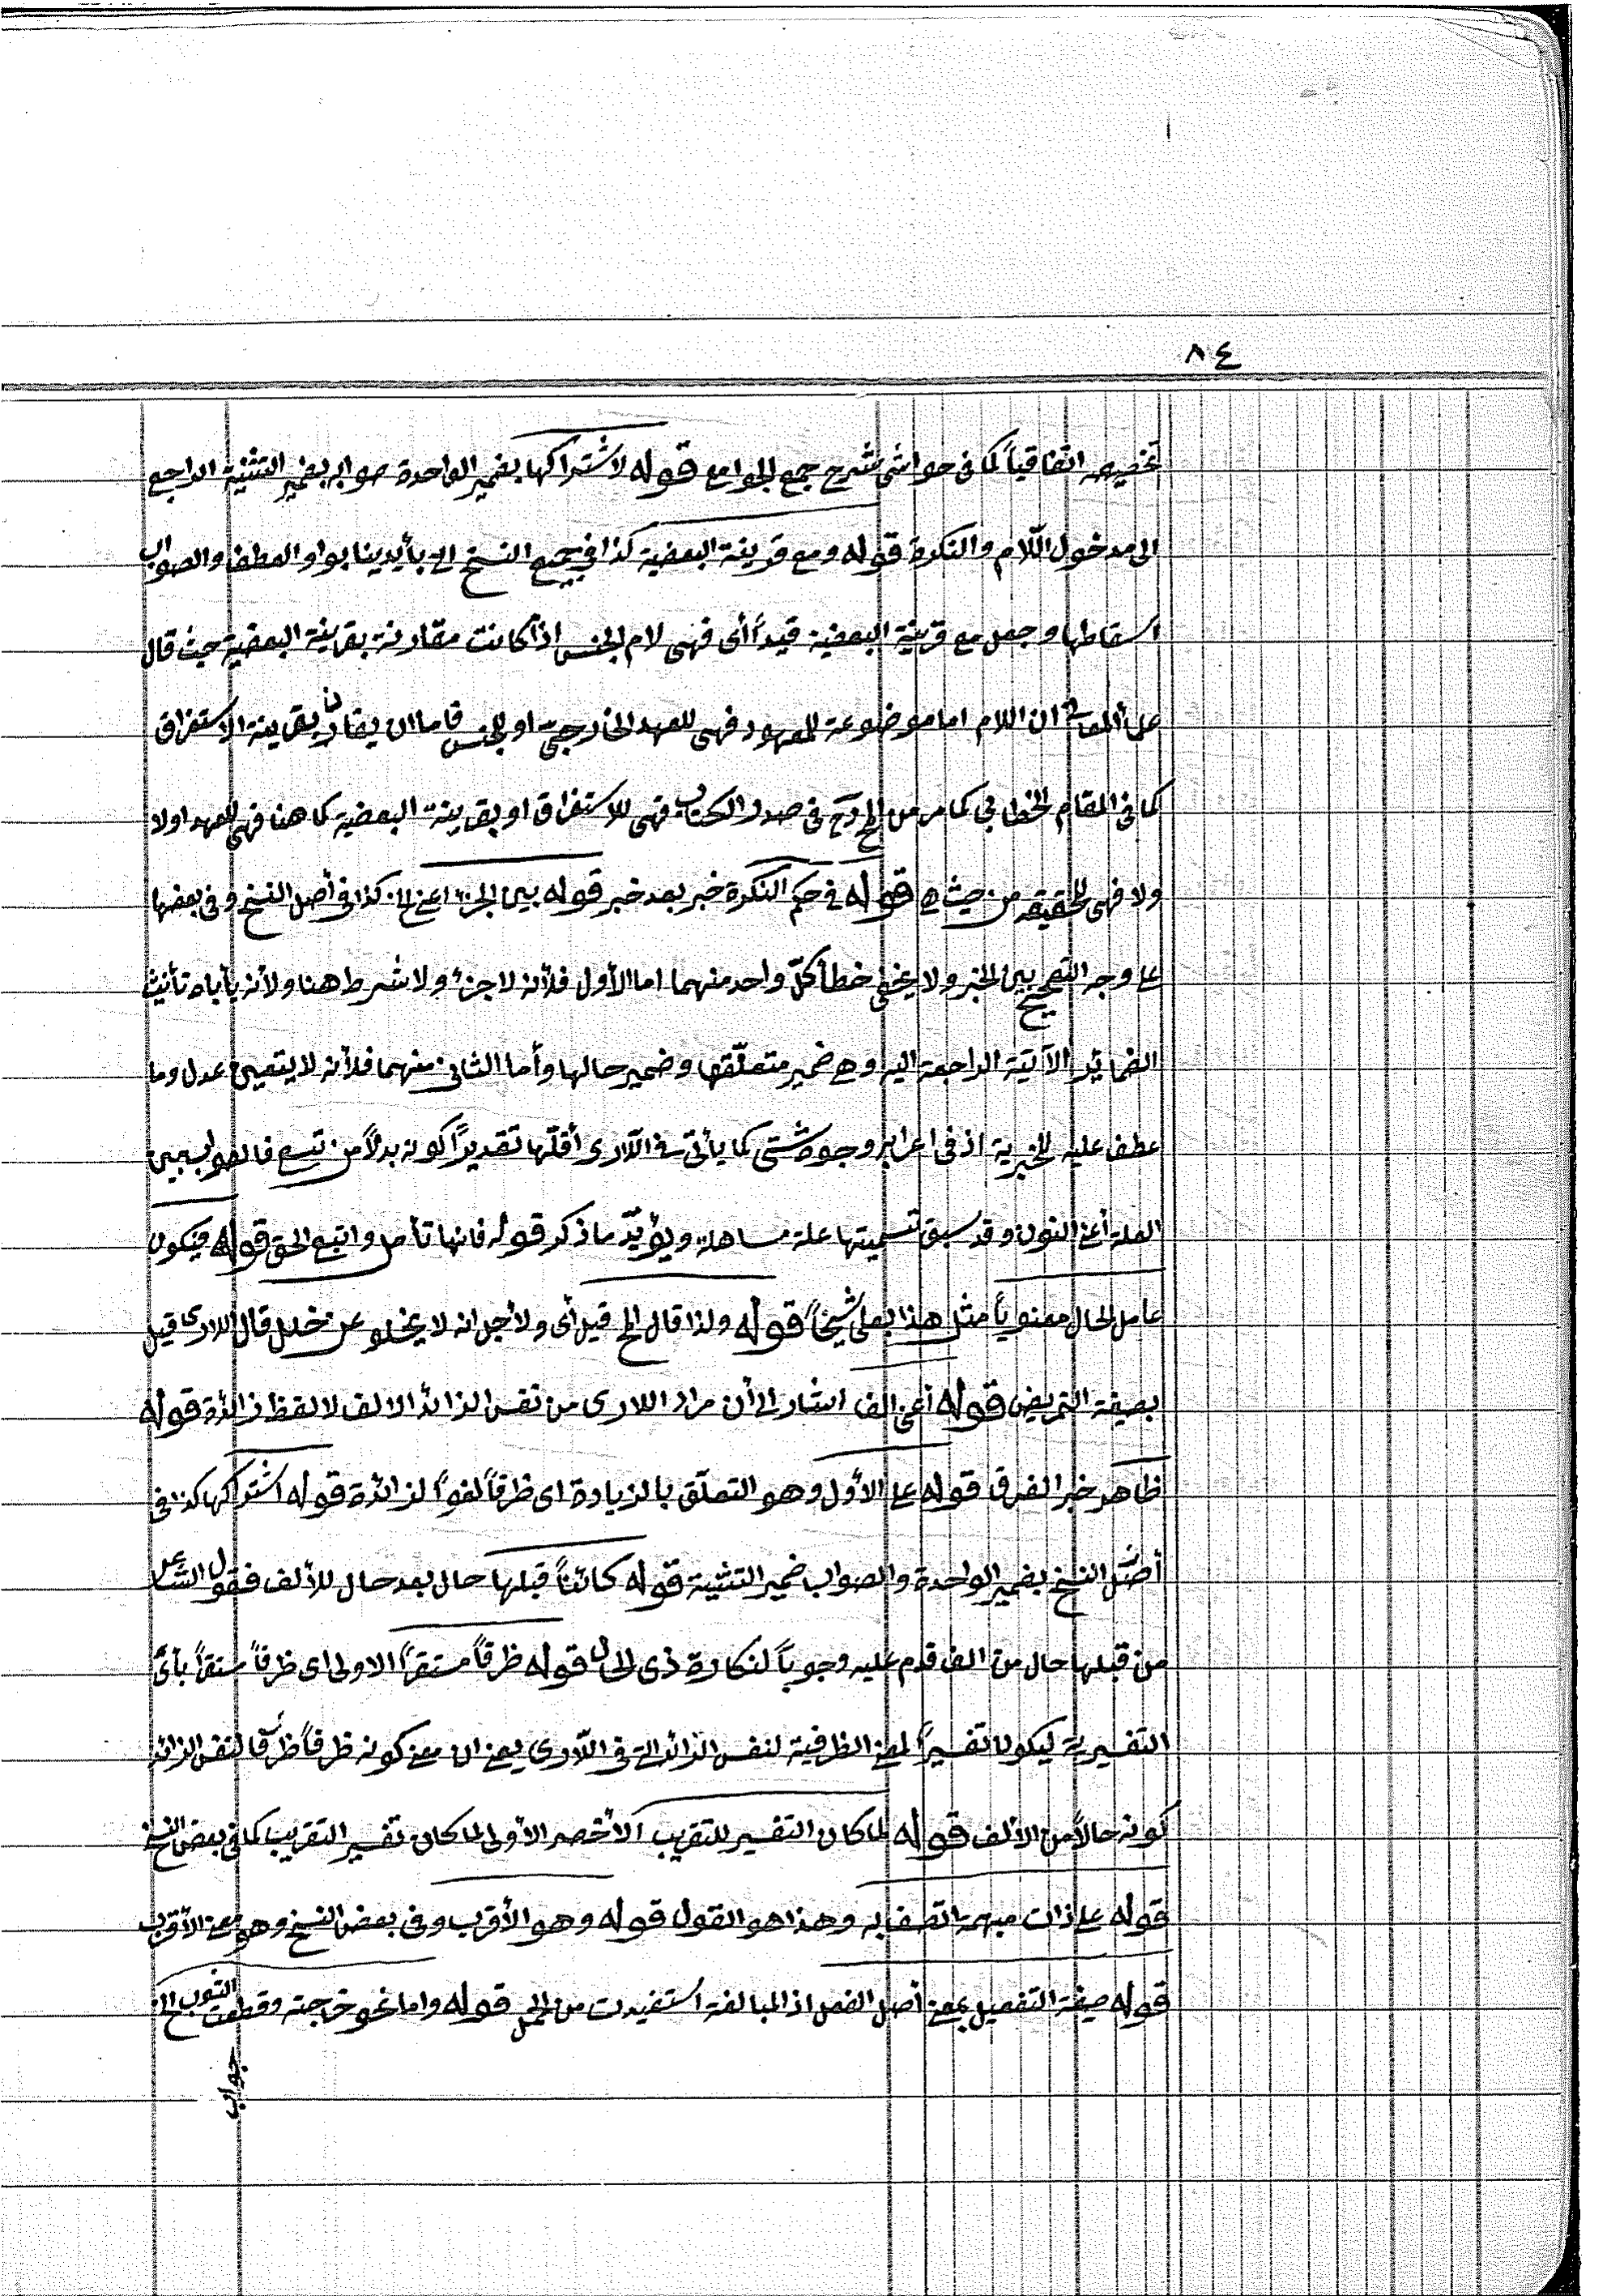 ٨٤
تخصيصه اتفاقياً كما فى حواشى شرح جمع الجوامع قوله لاشتراكها بضمير الواحدة صوابه بضمير التثنية الراجع
الى مدخول اللّام والنكرة قوله ومع قرينة البعضية كذا فى جميع النسخ التى بأيدينا بواو العطف والصواب
اسقاطها وجعل مع قرينة البعضية قيداً أى فهى لام الجنس اذا كانت مقارنة بقرينة البعضية حيث قال
ان اللام اما موضوعة للمعهود فهى للعهد الخارجى او للجنس فاما ان يقارن بقرينة الاستغراق
كما فى المقام الخطابى كما مر من فى صدر الكتاب فهى للاستغراق او بقرينة البعضية كما هنا فهى للعهد اولا
ولا فهى للحقيقة من حيث هى قوله فى حكم النكرة خبر بعد خبر قوله بين الجزء اعنى الخ كذا فى أصل النسخ وفى بعضها
على وجه التصحيح بين الخبر ولا يخفى خطأ كلّ واحد منهما اما الأول فلأنه لا جزء ولا شرط هنا ولأنه يأباه تأنيث
الضمائر الآتية الراجعة اليه وهى ضمير متعلّقها وضمير حالها وأما الثانى منهما فلأنه لا يتعين عدل وما
عطف عليه للخبرية اذ فى اعرابه وجوه شتى كما يأتى فى اللّارى أقلّها تقديراً كونه بدلاً من تسع فالصواب بين
العلة أعنى النون وقد سبق تسميتها علة مساهلة ويؤيّد ما ذكر قوله فانها تأمل واتبع الحق قوله فيكون
عامل الحال معنوياً مثل هذا بعلى شيخاً قوله ولذا قال الخ قيل أى ولأجل انه لا يخلو عن خلل قال اللارى قيل
بصيغة التمريض قوله أعنى الف اشار الى أن مراد اللارى من نفس الزائد الالف لا لفظ زائدة قوله
ظاهر خبر الفرق قوله على الأول وهو التعلّق بالزيادة اى ظرفاً لغواً لزائدة قوله اشتراكها كذا فى
أصل النسخ بضمير الواحدة والصواب ضمير التثنية قوله كائناً قبلها حال بعد حال للألف فقول الشاعر
من قبلها حال من الف قدم عليه وجوباً لنكارة ذى الحال قوله ظرفاً مستقراً الاولى اى ظرفاً مستقراً بأى
التفسيرية ليكون تفسيراً لمعنى الظرفية لنفس الزائد التى فى اللّارى يعنى ان معنى كونه ظرفاً لنفس الزائد
كونه حالاً من الألف قوله لما كان التفسير للتقريب الأخصر الأولى لما كان تفسير التقريب كما فى بعض النسخ
قوله على ذات مبهمة اتصف به وهذا هو القول قوله وهو الأقرب وفى بعض النسخ وهو معنى الأقرب
قوله صيغة التفعيل بمعنى أصل الفعل اذ المبالغة استفيدت من الحمل قوله واما نحو خراجته وقطعت الثوب الخ
جواب